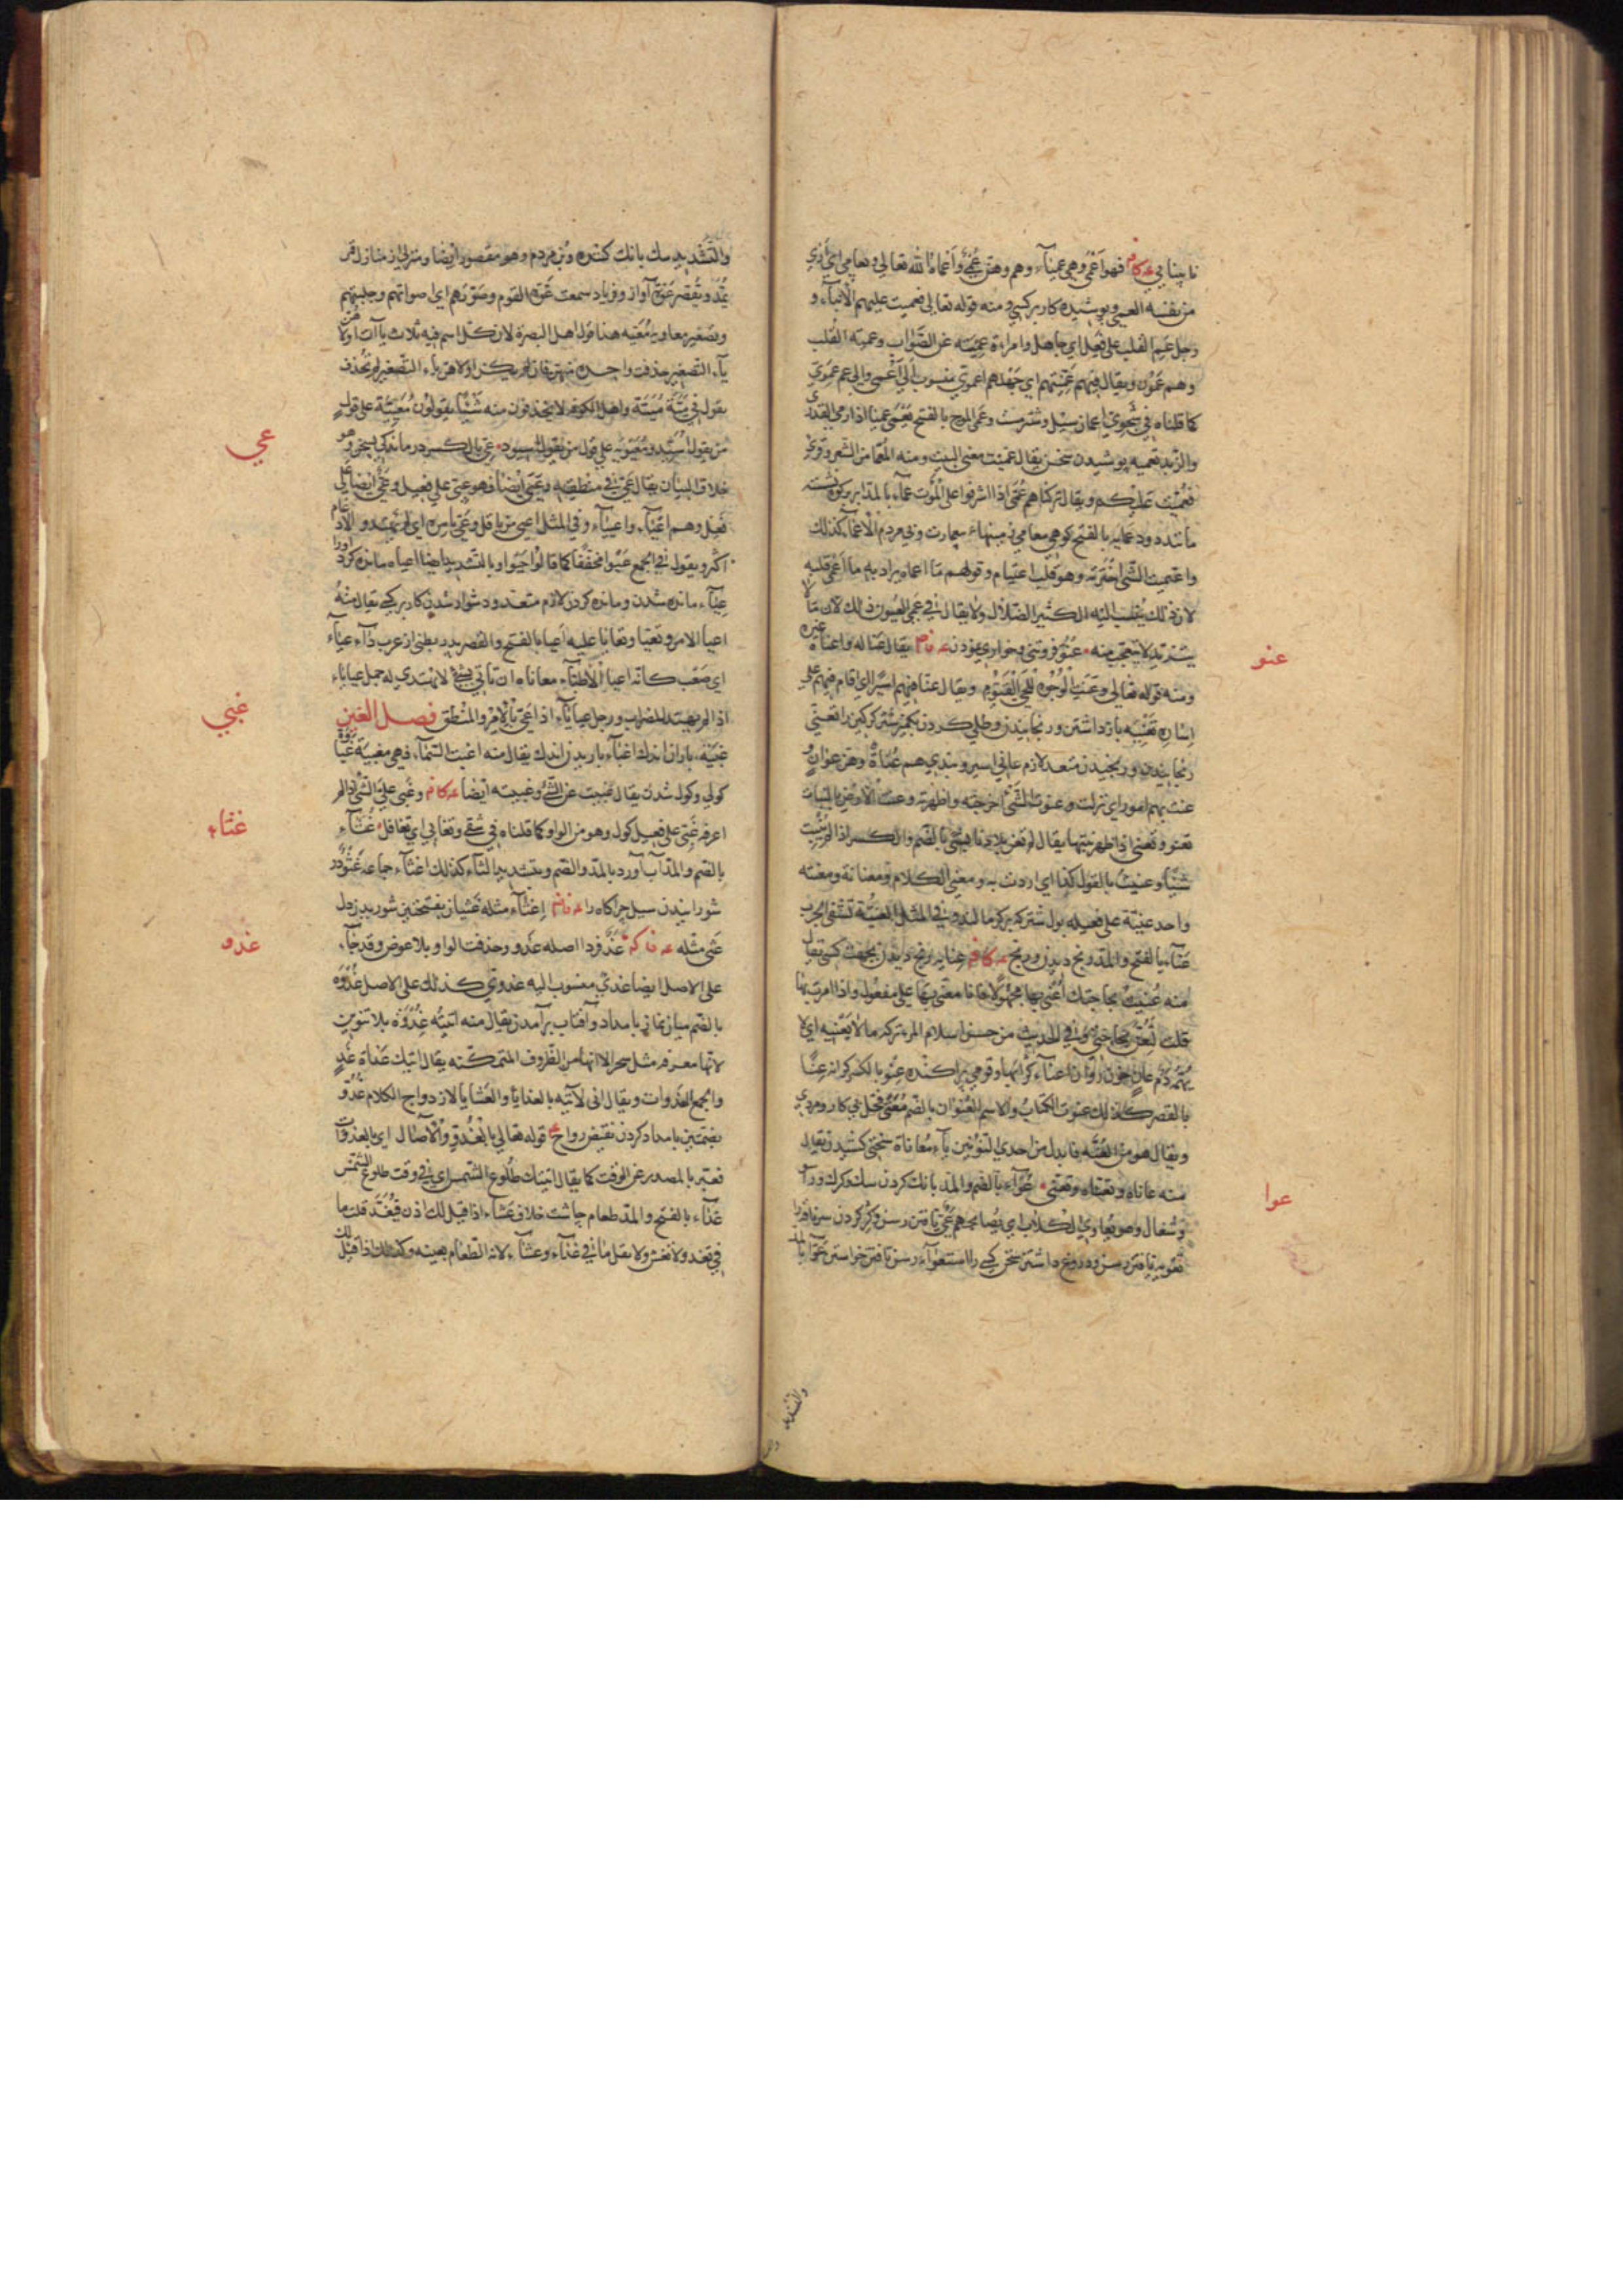 نابینایی فهو اعمی وهی عمیاء وهم وهن عمی واعماه الله تعالی وتعامی ای اری
من نفسه العمی وپوشیده کار بر کسی ومنه قوله تعالی فعمیت علیهم الانباء و
رجل عمی القلب علی فعل ای جاهل وامراة عمیة عن الصواب وعمیة القلب
وهم عمون ویقال فیهم عمیتهم ای جهلهم اعموی منسوب الی اعمی والی عم عموی
کما قلناه فی شجوی اعمیان سیل وشتر مست وعمی الموج بالفتح یعمی عمیا اذا رمی القذی
والزبد تعمیه پوشیدن سخن یقال عمیت معنی البیت ومنه المعما من الشعر وقری
فعمیت علیکم ویقال ترکناهم عمی اذا اشرفوا علی الموت عماء بالمد ابر
مانند دود عمایه بالفتح کوهی معامی زمینهاء بی عمارت وبی مردم الاعماء کذلک
واعتمیت الشی اخترته وهو قلب اعتیام وقولهم ما اعماه یراد به ما اعمی قلبه
لان ذلک ینسب الیه الکثیر الضلال ولا یقال فی عمی العیون ذلک لان ما
یتزید لا یتعجب منه عنو فروتنی وخواری نمودن یقال عنا له واعناه غیره
ومنه قوله تعالی وعنت الوجوه للحی القیوم ویقال عنا فیهم اسیرا ای اقام فیهم علی
اساره تعنیه بازداشتن ورنجانیدن وطلی کردن بکمیز شتر گرگین را تعنی
رنجانیدن ورنجیدن متعد لازم عانی اسیر وبندی هم عناة وهن عوان و
عنت بهم امور ای نزلت وعنوت الشی اخرجته واظهرته وعنت الارض بالنبات
تعنو وتعنی اذا ظهر نبتها یقال لم تعن بلادنا بشی بالضم والکسر اذا لم تنبت
شیئا وعنیت بالقول کذا ای اردت به ومعنی الکلام ومعناته ومعنیته
واحد عنیة علی فعیلة بول شتر که برگر مالند وفی المثل العنیة تشفی الجرب
عناء بالفتح والمد رنج دیدن ورنج عنایه رنج دیدن بجهت کسی یقال
منه عنیت بحاجتک اعنی بها مجهولا فانا معنی بها علی مفعول واذا امرت بها
قلت لتعن بحاجتی وفی الحدیث من حسن اسلام المرء ترکه ما لا یعنیه ای لا
یهمه دم عان خون روان اعناء کرانها وقومی پراکنده عنو بالکسر کرانه عنا
بالقصر کذلک عنوت الکتاب والاسم العنوان بالضم معنی فحل بی کار ومردی
ویقال هو من العنة فابدل من احدی النونین یاء معاناة سختی کشیدن یقال
منه عاناه وتعناه وتعنی عواء بالضم والمد بانک کردن سک وکرک
وشغال وهو یعاوی الکلاب ای یصایحهم عی تافتن رسن وکژ کردن سر ناقه را
تعویه تافتن رسن ودروغ داشتن سخن کسی را استعواء رسن تافتن خواستن عوا بالمد
والتشدید
عنو
عوا
والتشدید سک بانک کننده وبن مردم وهو مقصور ایضا ومنزلی از منازل قمر
یمد ویقصر عوة آواز وفریاد سمعت عوة القوم وضوتهم ای اصواتهم وجلبتهم
وتصغیر معاویة معیة هذا قول اهل البصرة لان کل اسم فیه ثلاث یاآت اولاهن
یاء التصغیر حذفت واحدة منهن فان لم یکن اولاهن یاء التصغیر لم تحذف
یقول فی میة مییة واهل الکوفه لا یحذفون منه شیئا یقولون معییة علی قول
من یقول اسید ومعیویة علی قول من یقول اسیود عی بالکسر درماندگی بسخن وهو
خلاف البیان یقال عی فی منطقه وعیی ایضا فهو عیی علی فعیل وعی ایضا علی
فعل وهم اعیاء واعییاء وفی المثل اعیی من باقل وعی بامره ای لم یهتد والادغام
اکثر ویقول فی الجمع عیوا مخففا کما قالوا حیوا وبالتشدید ایضا اعیاه مانده کرد اورا
اعیاء مانده شدن ومانده کردن لازم متعد ودشوار شدن کار بر کسی یقال منه
اعیا الامر وتعیا وتعایا علیه اعیا بالفتح والقصر پدر بطنی از عرب داء عیاء
ای صعب کانه اعیا الاطباء معاناة ان تأتی بشی لا یهتدی له جمل عیایاء
اذا لم یهتد للضراب ورجل عیایاء اذا عی بالامر والمنطق فصل الغین
غبیة باران اندک اغباء باریدن اندک یقال منه اغبت السماء فهی مغبیة غباوة
کولی وکول شدن یقال غبیت عن الشی وغبیته ایضا وغبی علی الشی اذا لم
اعرفه غبی علی فعیل کول وهو من الواو کما قلناه فی شقی وتغابی ای تغافل غثاء
بالضم والمد آب آورد بالمد والضم وبتشدید الثاء کذلک اغثاء جماعه غثو در
شورانیدن سیل چراکاه را اغثاء مثله غثیان بفتحتین شوریدن دل
غثی مثله غد فردا اصله غدو وحذفت الواو بلا عوض وقد جاء
علی الاصل ایضا غدی منسوب الیه غدوی کذلک علی الاصل غدوة
بالضم میان نماز بامداد وآفتاب برآمدن یقال منه اتیته غدوة بلا تنوین
لانها معرفة مثل سحر الا انها من الظروف المتمکنة یقال اتیتک غداة غد
والجمع الغدوات ویقال انی لآتیه بالغدایا والعشایا لازدواج الکلام غدو
بضمتین بامداد کردن نقیض رواح قوله تعالی بالغدو والآصال ای بالغدوات
فعبر بالمصدر عن الوقت کما یقال اتیتک طلوع الشمس ای فی وقت طلوع الشمس
غداء بالفتح والمد طعام چاشت خلاف عشاء اذا قیل لک ادن فتغد قلت ما
فی تغد ولا تعش ولا تقل ما فی غداء وعشاء لانه الطعام بعینه وکذلک اذا قیل لک
عی
غبی
غثاء
غدو